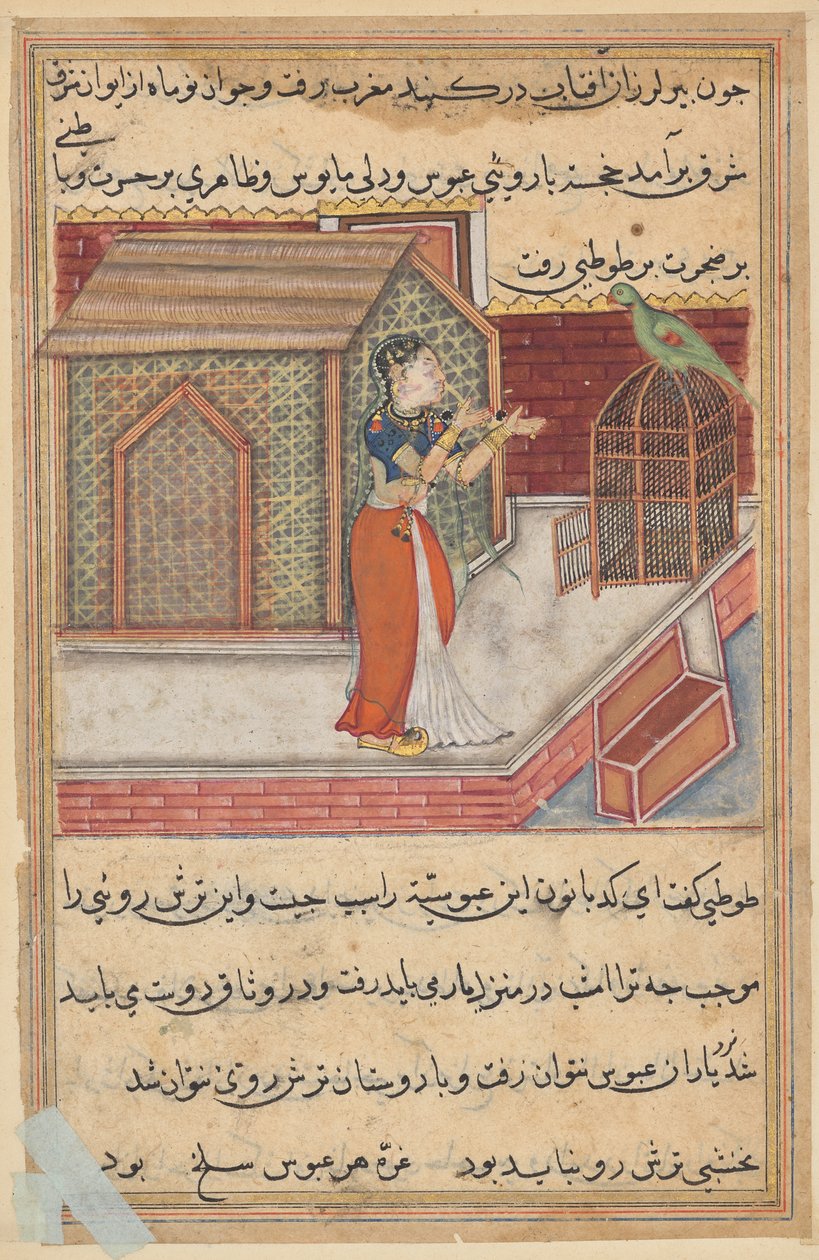 جون پیر لرزان آفتاب در کنبد مغرب رفت و جوان نو ماه از ایوان
شرق برآمد خجسته با روئی عبوس و دلی مایوس و ظاهری بر حسرت و با طنی
بر ضجرت بر طوطی رفت
طوطی کفت ای کدبانون این عبوسیّة را سبب جیست و این ترش روئی را
موجب جه ترا امشب در منزل یار می باید رفت و در وثاق دوست می باید
شد نزد یاران عبوس نتوان رفت و با دوستان ترش روی نتوان شد
نخشبی ترش رو نباید بود غرّه هر عبوس سلخ بود